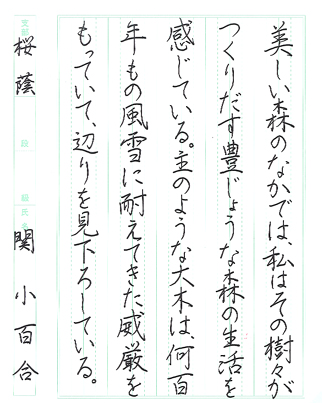 美しい森のなかでは、私はその樹々が
つくりだす豊じょうな森の生活を
感じている。主のような大木は、何百
年もの風雪に耐えてきた威厳を
もっていて、辺りを見下ろしている。
支部 桜蔭 段 級 氏名 関 小百合